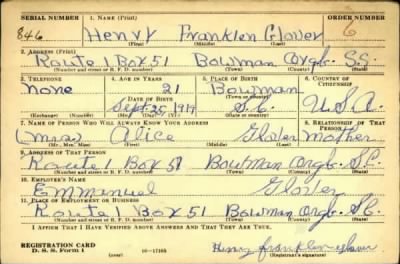 SERIAL NUMBER 1. NAME (Print) ORDER NUMBER
846 Henry Franklen Glover 6
(First) (Middle) (Last)
2. ADDRESS (Print)
Route 1 Box 51 Bowman Orgb. S.C.
(Number and street or R. F. D. number) (Town) (County) (State)
3. TELEPHONE 4. AGE IN YEARS 5. PLACE OF BIRTH 6. COUNTRY OF CITIZENSHIP
none 21 Bowman
DATE OF BIRTH (Town or county)
Sept. 25, 1919 S.C. U.S.A.
(Exchange) (Number) (Mo.) (Day) (Yr.) (State or country)
7. NAME OF PERSON WHO WILL ALWAYS KNOW YOUR ADDRESS 8. RELATIONSHIP OF THAT PERSON
(Mrs) Alice Glover Mother
(Mr., Mrs., Miss) (First) (Middle) (Last)
9. ADDRESS OF THAT PERSON
Route 1 Box 51 Bowman Orgb. S.C.
(Number and street or R. F. D. number) (Town) (County) (State)
10. EMPLOYER'S NAME
Emmanuel Glover
11. PLACE OF EMPLOYMENT OR BUSINESS
Route 1 Box 51 Bowman Orgb. S.C.
(Number and street or R. F. D. number) (Town) (County) (State)
I AFFIRM THAT I HAVE VERIFIED ABOVE ANSWERS AND THAT THEY ARE TRUE.
REGISTRATION CARD
D. S. S. Form 1 (over) 16—17105 Henry franklen glover
(Registrant's signature)